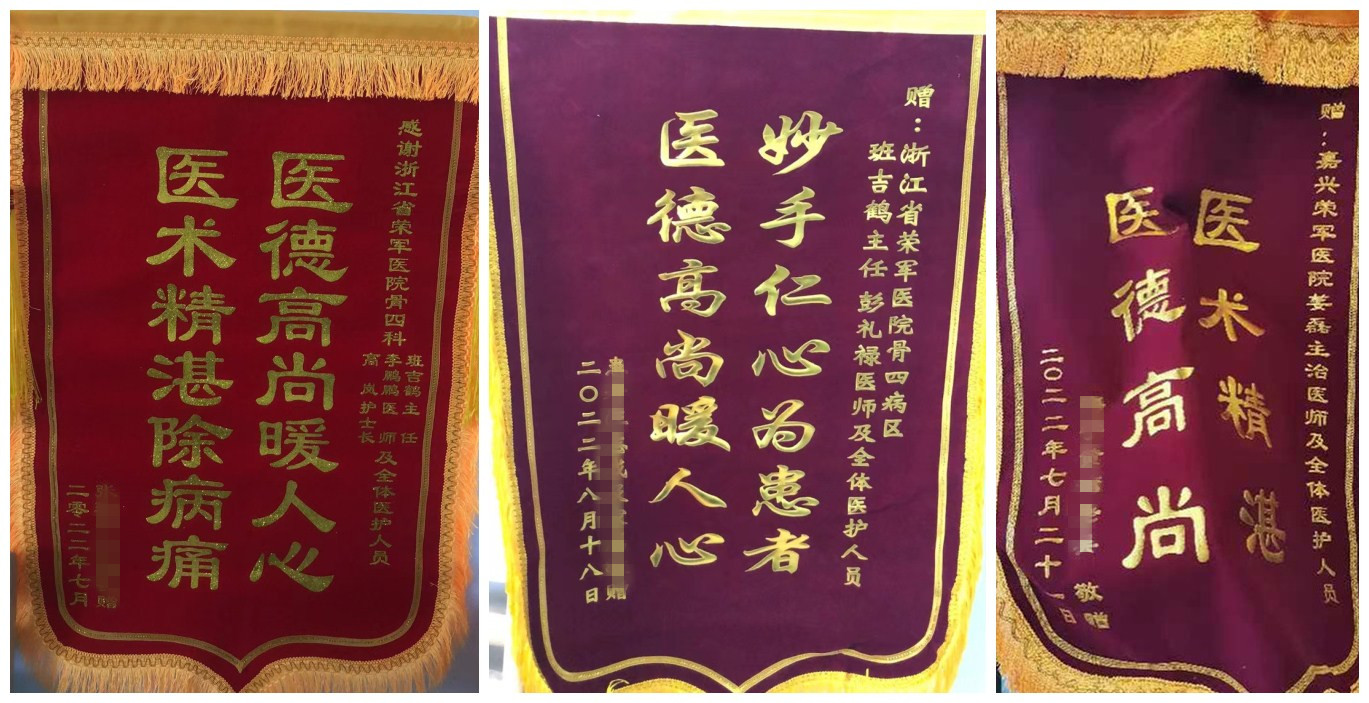 感谢浙江省荣军医院骨四科
班吉鹤主任
李鹏鹏医师
高岚护士长
及全体医护人员
医德高尚暖人心
医术精湛除病痛
赠
二零二二年七月
赠：浙江省荣军医院骨四病区
班吉鹤主任 彭礼禄医师及全体医护人员
妙手仁心为患者
医德高尚暖人心
赠
二〇二二年八月十八日
赠：嘉兴荣军医院姜磊主治医师及全体医护人员
医术精湛
医德高尚
敬赠
二〇二二年七月二十一日